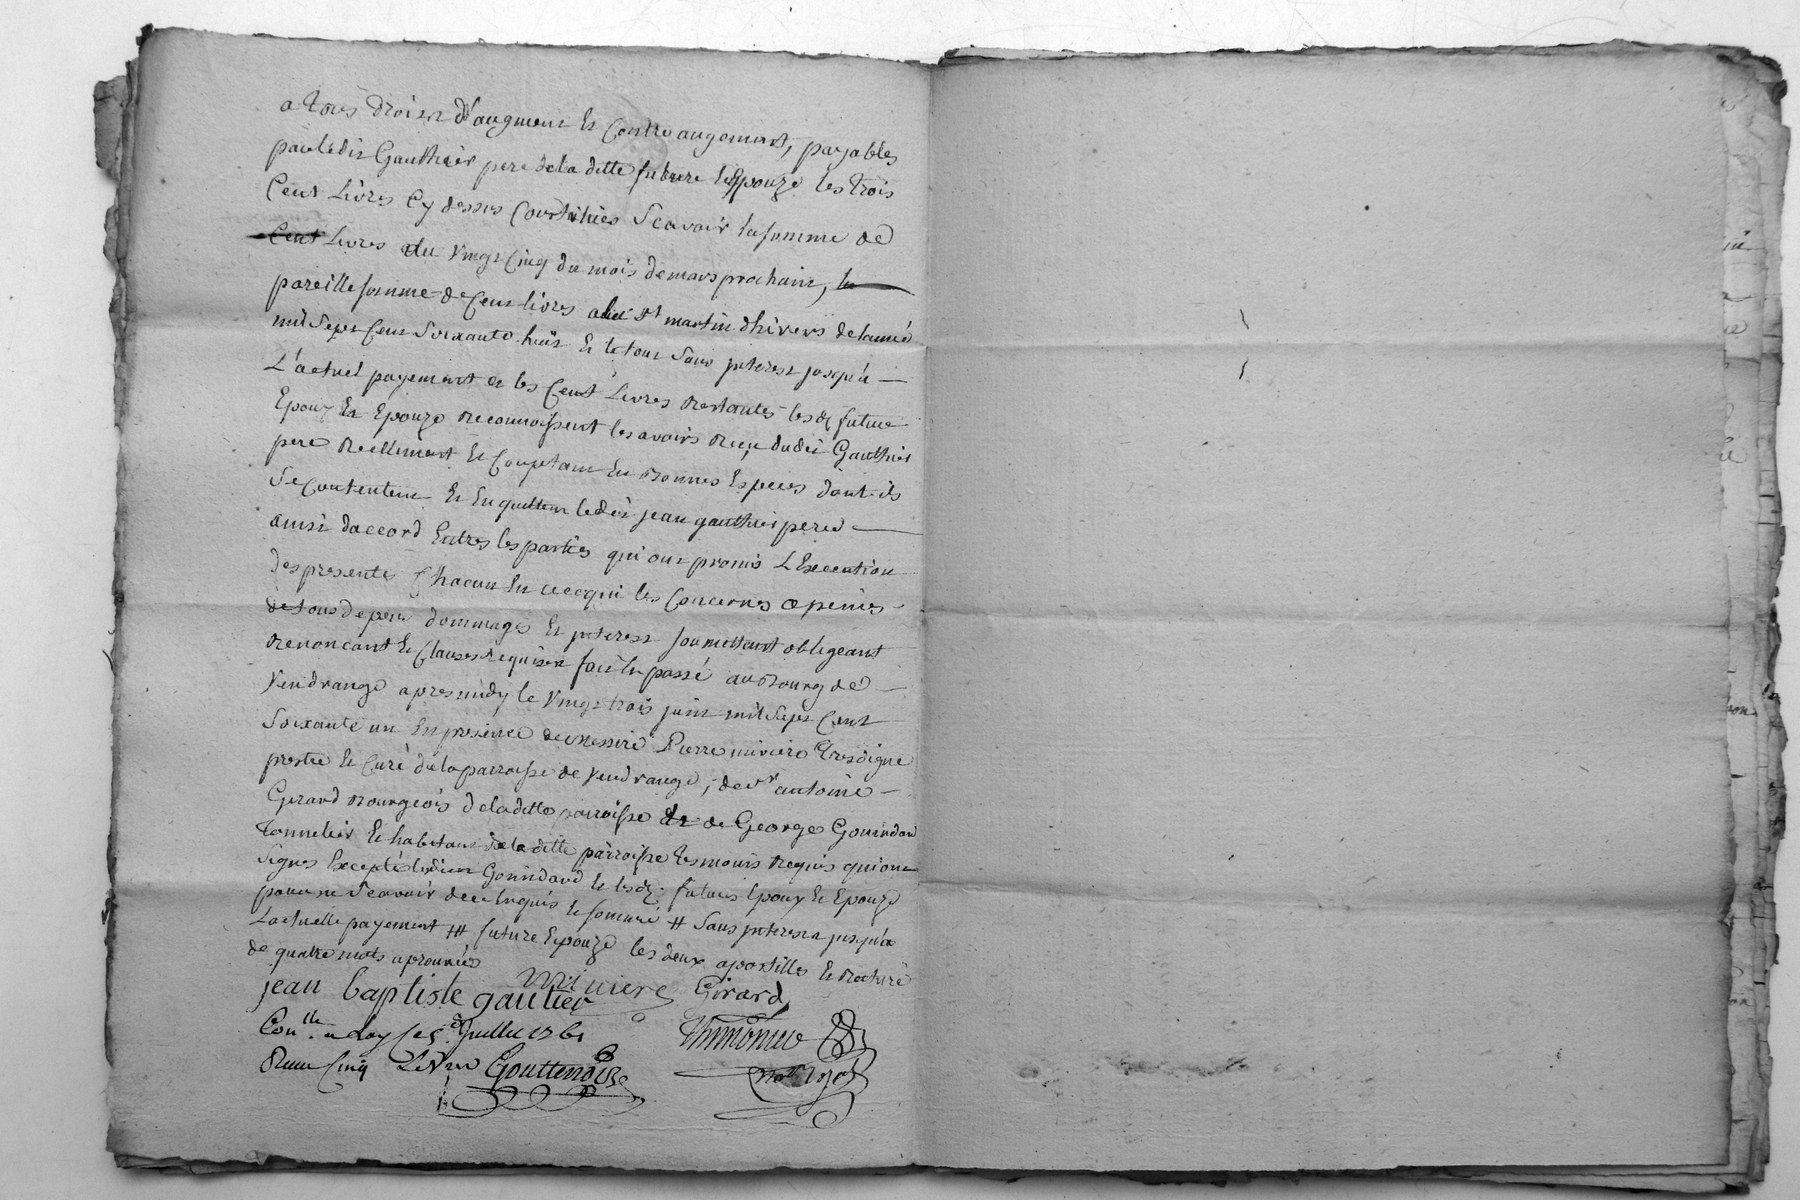 a tous droits d'augment et contre augement, payables
par ledit Gauthier pere de la ditte future Epouze les trois
Cent Livres Cy dessus Constituées Scavoir la somme de
Cent Livres au vingt Cinq du mois de mars prochain,
pareille somme de Cent livres a la St martin dhivers de lanné
mil Sept Cent Soixante huit et le tout Sans jnterest jusqu'a
L'actuel payement et les Cent Livres restantes lesd. future
Epoux Et Epouze reconnoissent les avoirs reçu dudit Gauthier
pere reellement et Comptant en bonnes Especes dont ils
Se Contentent et En quittent ledit jean gauthier pere
ainsi daccord Entres les parties qui ont promis L'Execution
des presentes Chacun En ce qui les Concernes a peines
de tous depens dommages et jnterest soumettant obligeant
renoncant et Clauses requises fait et passé au Bourg de
Vendrange apres midy le vingt trois juin mil Sept Cent
Soixante un En presence de Messire Pierre miviere Tres digne
prestre et Curé de la parroisse de Vendrange, de Sr antoine
Gerard Bourgeois de la ditte parroisse et de George Gonindard
Tonnelier et habitant de la ditte parroisse tesmoins requis qui ont
Signes Excepté ledit Gonindard et lesd. futurs Epoux et Epouze
pour ne Scavoir de ce Enquis et sommé # Sans jnterest jusqu'a
Lactuelle payement ## future Epouze les deux apostilles et rature
de quatre mots aprouvées
jean baptiste gautier Miviere Girard
Conlle a Lay le 5e Juillet 1761
Reçu Cinq Livres Gouttenoire
Thimonier
notre royal